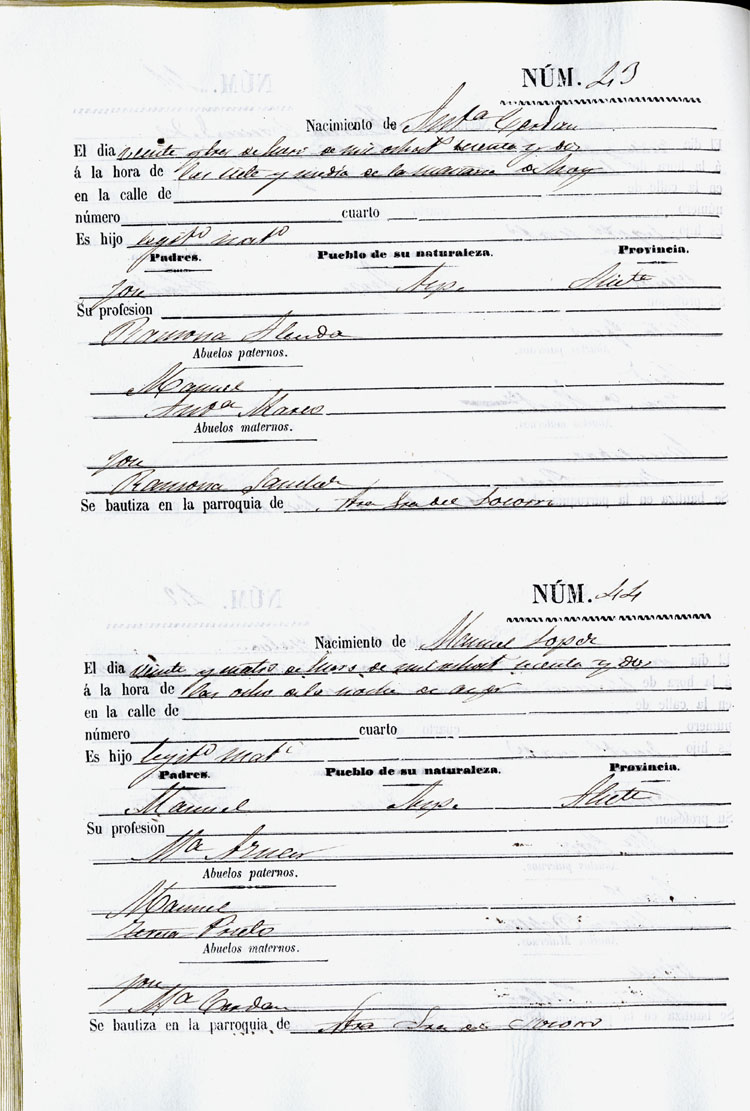 NÚM. 43
Nacimiento de Antª Cerdan
El dia veinte y tres de Mars de mil ochost setenta y dos
á la hora de las siete y media de la mañana de hoy
en la calle de
número cuarto
Es hijo legitº natº
Padres. Pueblo de su naturaleza. Provincia.
José Asp. Alicte
Su profesion
Ramona Alenda
Abuelos paternos.
Manuel
Antª
Abuelos maternos.
José
Ramona Sanchez
Se bautiza en la parroquia de Ntra Sra del Socorro
NÚM. 44
Nacimiento de Manuel Lopez
El dia veinte y cuatro de Mars de mil ochost setenta y dos
á la hora de las ocho de la noche de ayer
en la calle de
número cuarto
Es hijo legitº natº
Padres. Pueblo de su naturaleza. Provincia.
Manuel Asp. Alicte
Su profesion
Mª
Abuelos paternos.
Manuel
Teresa Prieto
Abuelos maternos.
José
Mª Cerdan
Se bautiza en la parroquia de Ntra Sra del Socorro